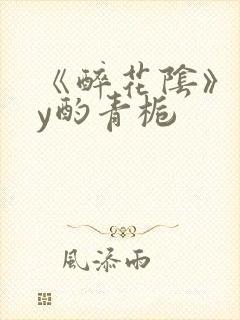 《醉花陰》
y酌青梔
風添雨